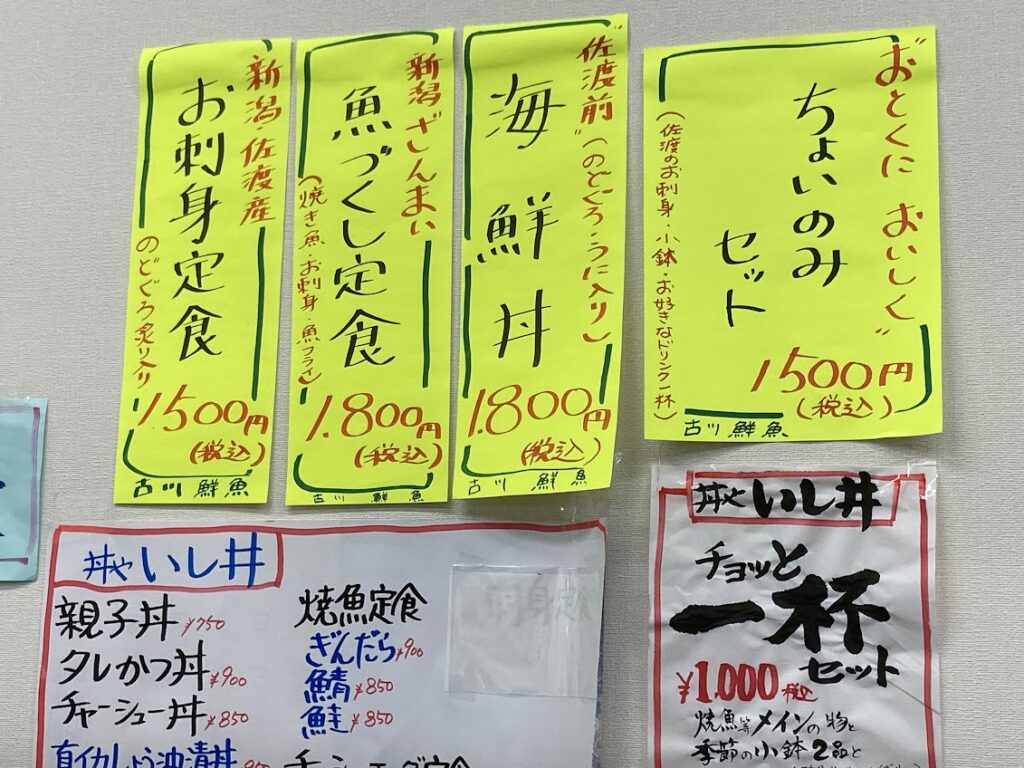 新潟・佐渡産
お刺身定食
のどぐろ炙り入り
1500円
(税込)
古川鮮魚
新潟ざんまい
魚づくし定食
(焼き魚・お刺身・魚フライ)
1.800円
(税込)
古川鮮魚
"佐渡前"(のどぐろ・うに入り)
海鮮丼
1.800円
(税込)
古川鮮魚
"おとくに おいしく"
ちょいのみ
セット
(佐渡のお刺身・小鉢・お好きなドリンク一杯)
1500円
(税込)
古川鮮魚
丼や いし井
親子丼 ¥750
タレかつ丼 ¥900
チャーシュー丼 ¥850
焼魚定食
ぎんだら ¥900
鯖 ¥850
鮭 ¥850
丼や いし井
チョッと
一杯
セット
¥1.000 税込
焼魚等メインの物と
季節の小鉢2品と